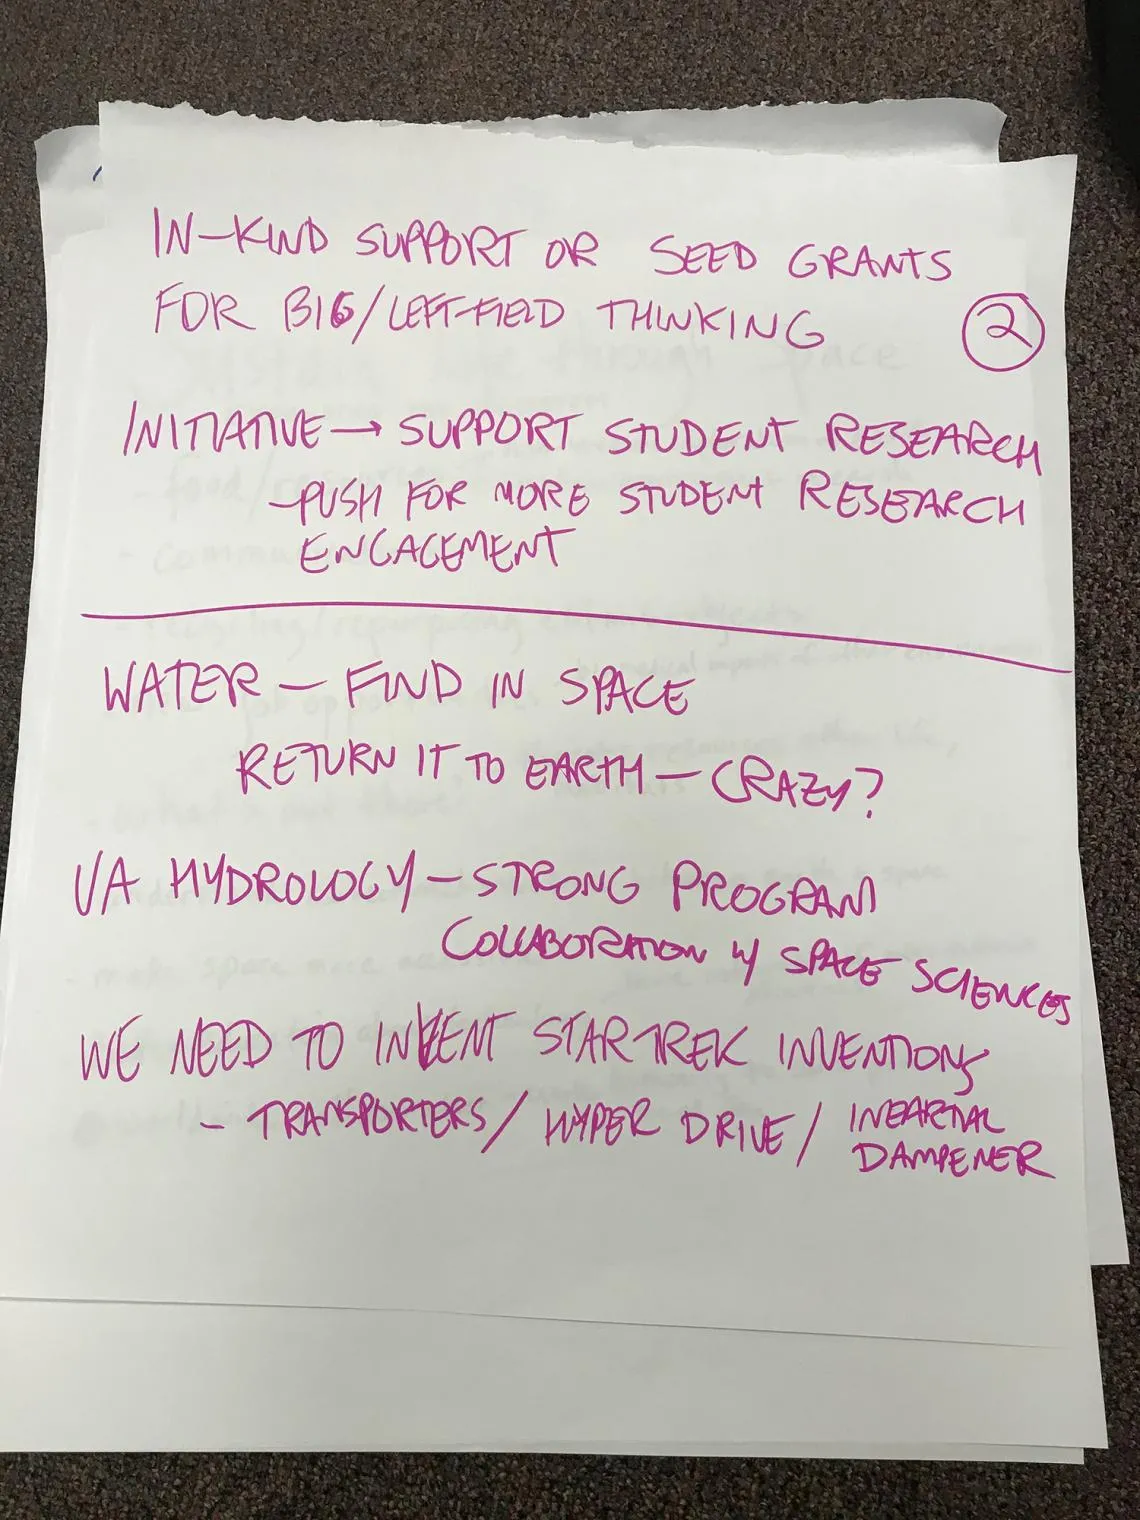 IN-KIND SUPPORT OR SEED GRANTS
FOR BIG/LEFT-FIELD THINKING
2
INITIATIVE → SUPPORT STUDENT RESEARCH
-PUSH FOR MORE STUDENT RESEARCH
ENGAGEMENT
WATER - FIND IN SPACE
RETURN IT TO EARTH - CRAZY?
UA HYDROLOGY - STRONG PROGRAM
COLLABORATION W/ SPACE SCIENCES
WE NEED TO INVENT STAR TREK INVENTIONS
- TRANSPORTERS / HYPER DRIVE / INEARTIAL
DAMPENER